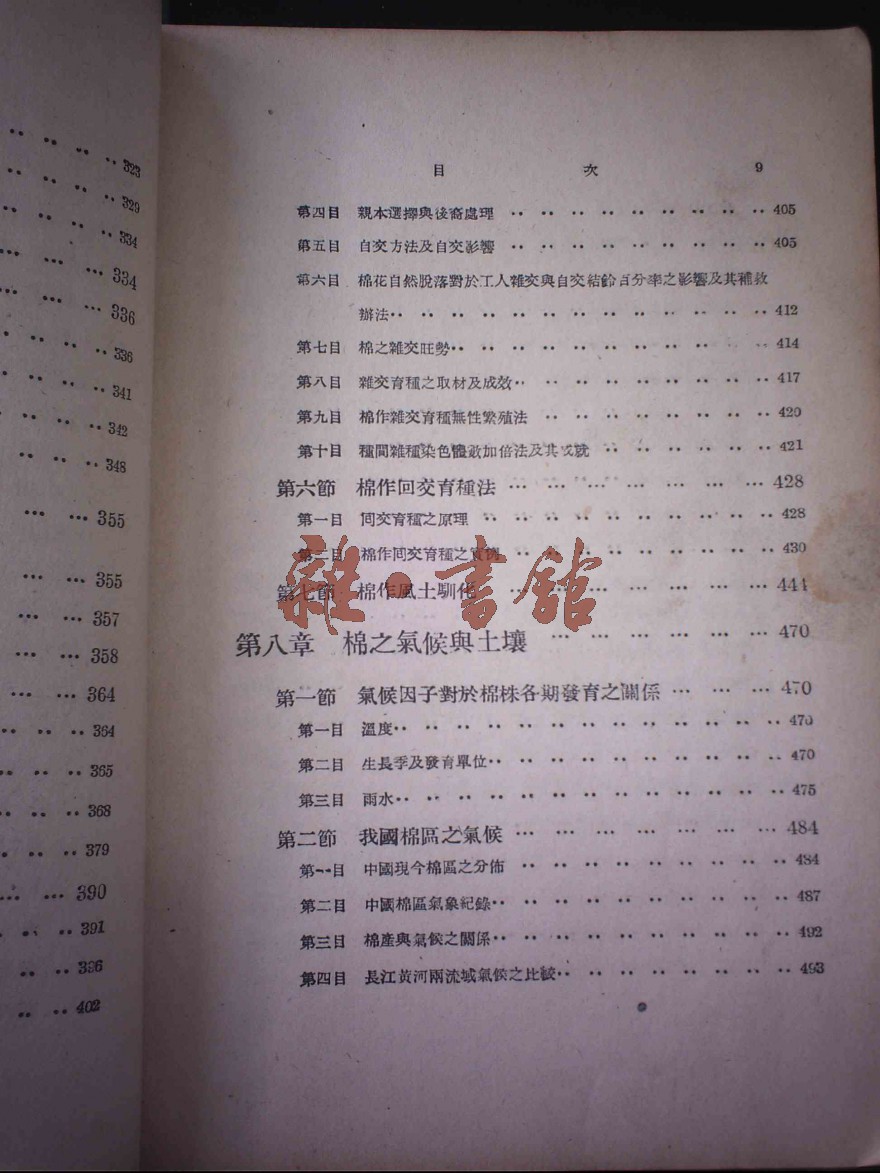 323
329
334
334
336
336
341
342
348
355
355
357
358
364
364
365
368
379
390
391
396
402
目 次 9
第四目 親本選擇與後裔處理 ‥ ‥ ‥ ‥ ‥ ‥ ‥ ‥ ‥ 405
第五目 自交方法及自交影響 ‥ ‥ ‥ ‥ ‥ ‥ ‥ ‥ ‥ 405
第六目 棉花自然脫落對於工人雜交與自交結鈴百分率之影響及其補救
辦法‥ ‥ ‥ ‥ ‥ ‥ ‥ ‥ ‥ ‥ ‥ ‥ ‥ 412
第七目 棉之雜交旺勢‥ ‥ ‥ ‥ ‥ ‥ ‥ ‥ ‥ ‥ ‥ 414
第八目 雜交育種之取材及成效‥ ‥ ‥ ‥ ‥ ‥ ‥ ‥ ‥ 417
第九目 棉作雜交育種無性繁殖法 ‥ ‥ ‥ ‥ ‥ ‥ ‥ ‥ 420
第十目 種間雜種染色體數加倍法及其成就 ‥ ‥ ‥ ‥ ‥ ‥ 421
第六節 棉作回交育種法 … … … … … … … 428
第一目 回交育種之原理 ‥ ‥ ‥ ‥ ‥ ‥ ‥ ‥ ‥ ‥ 428
第二目 棉作回交育種之實例 ‥ ‥ ‥ ‥ ‥ ‥ ‥ ‥ 430
第七節 棉作風土馴化 … … … … … … … 444
雜·書館
第八章 棉之氣候與土壤 … … … … … … 470
第一節 氣候因子對於棉株各期發育之關係 … … … 470
第一目 溫度‥ ‥ ‥ ‥ ‥ ‥ ‥ ‥ ‥ ‥ ‥ ‥ ‥ 470
第二目 生長季及發育單位‥ ‥ ‥ ‥ ‥ ‥ ‥ ‥ ‥ ‥ 470
第三目 雨水‥ ‥ ‥ ‥ ‥ ‥ ‥ ‥ ‥ ‥ ‥ ‥ ‥ 475
第二節 我國棉區之氣候 … … … … … … … 484
第一目 中國現今棉區之分佈 ‥ ‥ ‥ ‥ ‥ ‥ ‥ ‥ ‥ 484
第二目 中國棉區氣象紀錄‥ ‥ ‥ ‥ ‥ ‥ ‥ ‥ ‥ ‥ 487
第三目 棉產與氣候之關係‥ ‥ ‥ ‥ ‥ ‥ ‥ ‥ ‥ ‥ 492
第四目 長江黃河兩流域氣候之比較‥ ‥ ‥ ‥ ‥ ‥ ‥ ‥ 493